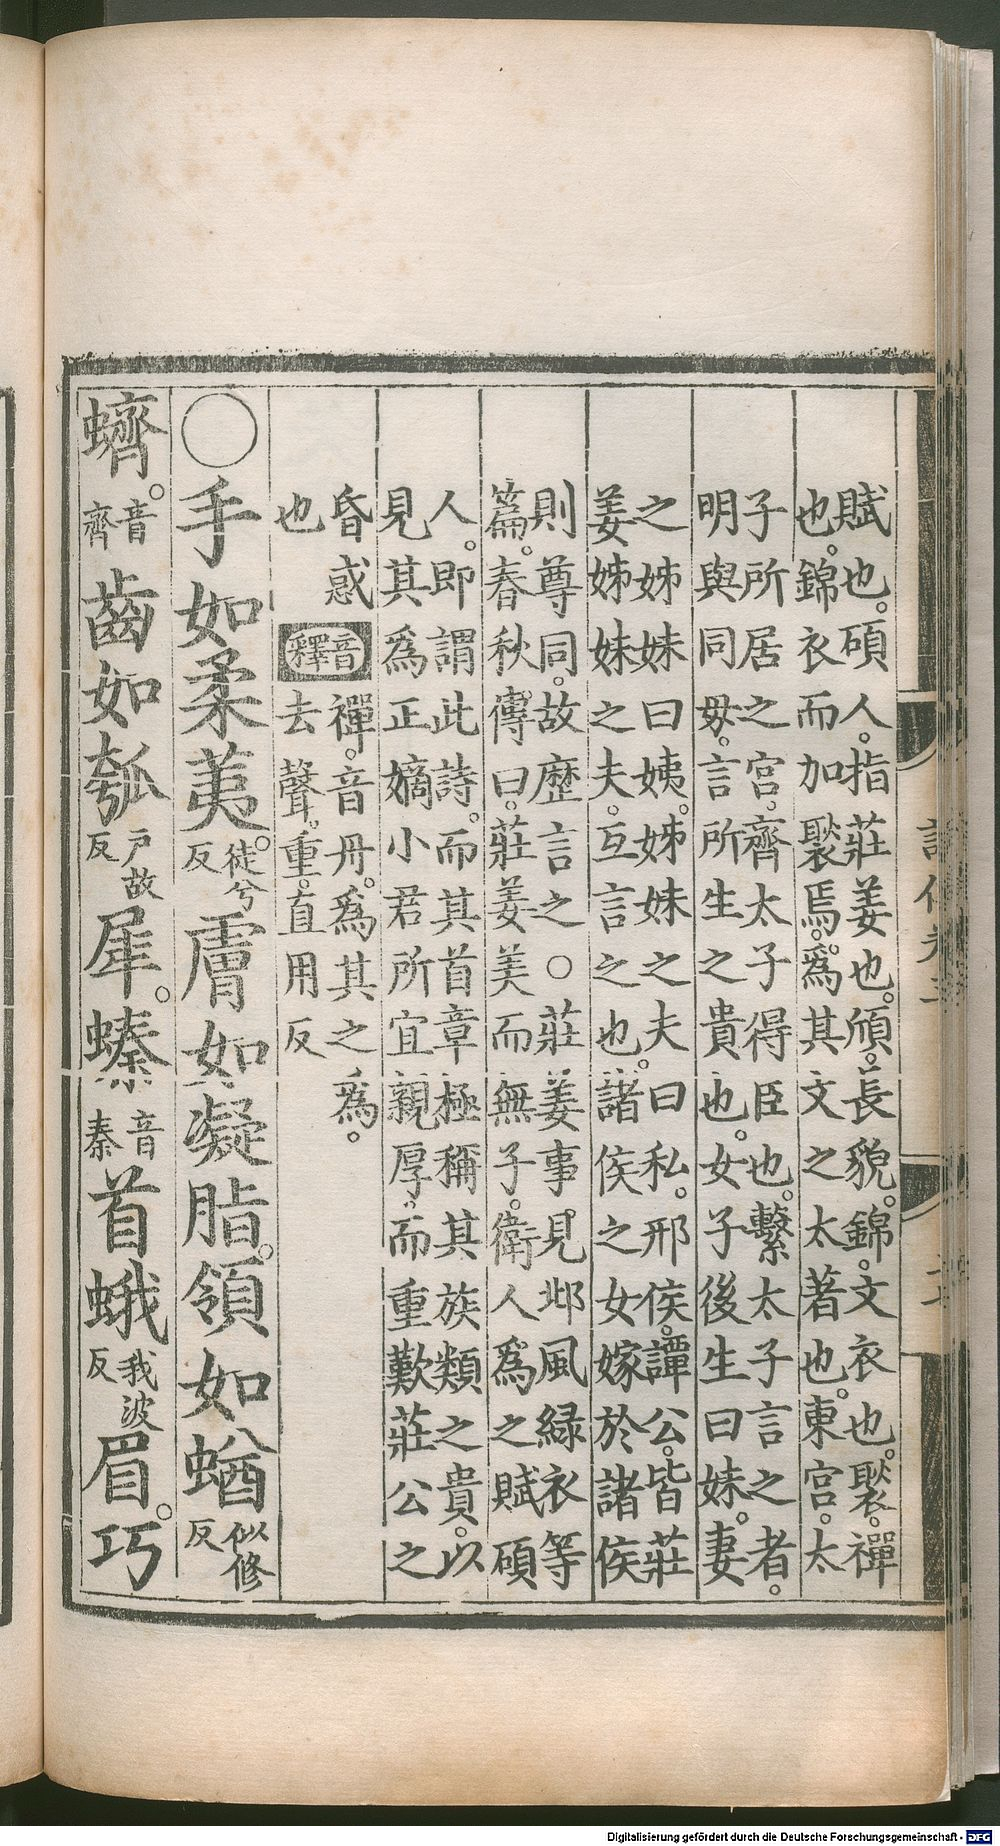 賦也。碩人。指莊姜也。頎。長貌。錦。文衣也。褧。禪
也。錦衣而加褧焉。爲其文之太著也。東宮。太
子所居之宮。齊太子得臣也。繫太子言之者。
明與同母。言所生之貴也。女子後生曰妹。妻
之姊妹曰姨。姊妹之夫曰私。邢侯。譚公。皆莊
姜姊妹之夫。互言之也。諸侯之女嫁於諸侯
則尊同。故歷言之○莊姜事。見邶風綠衣等
篇。春秋傳曰。莊姜美而無子。衛人爲之賦碩
人。即謂此詩。而其首章極稱其族類之貴。以
見其爲正嫡小君所宜親厚。而重歎莊公之
昏惑
也
音釋
禪。音丹。爲其之爲。
去聲。重。直用反
○手如柔荑。徒兮反膚如凝脂。領如蝤似修反
蠐。音齊齒如瓠戶故反犀。螓音秦首蛾我波反眉。巧
詩傳卷三
Digitalisierung gefördert durch die Deutsche Forschungsgemeinschaft - DFG